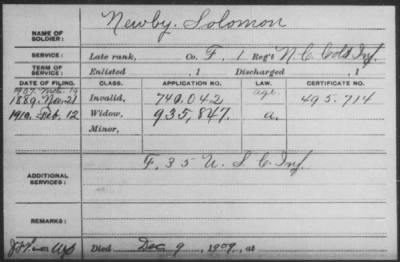 NAME OF SOLDIER: Newby, Solomon
SERVICE: Late rank, Co. F, 1 Reg't N. C. Cold Inf.
TERM OF SERVICE: Enlisted , 1 Discharged , 1
DATE OF FILING. CLASS. APPLICATION NO. LAW. CERTIFICATE NO.
1907. 14 age.
1889. Nov. 21 Invalid, 740,042 495.714
1910. Feb. 12 Widow, 935,847. a.
Minor,
ADDITIONAL SERVICES: F. 35 U. S. C. Inf.
REMARKS:
Died Dec 9, 1909, at